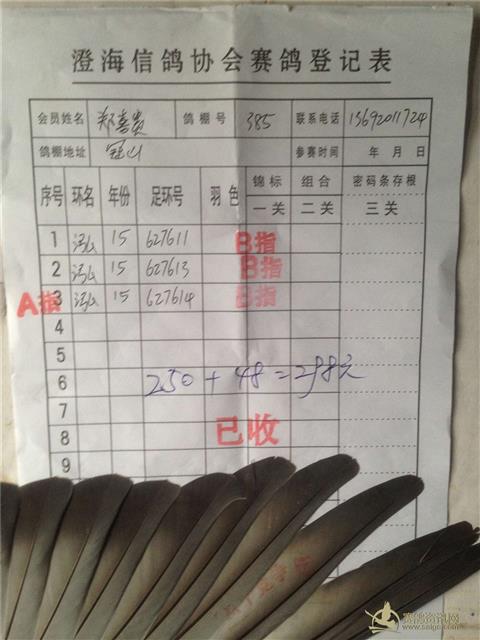 澄海信鸽协会赛鸽登记表
会员姓名 郑喜贵 鸽棚号 385 联系电话 13692011724
鸽棚地址 冠山 参赛时间 年 月 日
序号 环名 年份 足环号 羽色 锦标 组合 密码条存根
一关 二关 三关
1 15 627611 B指
2 15 627613 B指
A指 3 15 627614 B指
4
5
6 250+48=298元
7
8 已收
9
赛鸽资讯网
www.saige.com